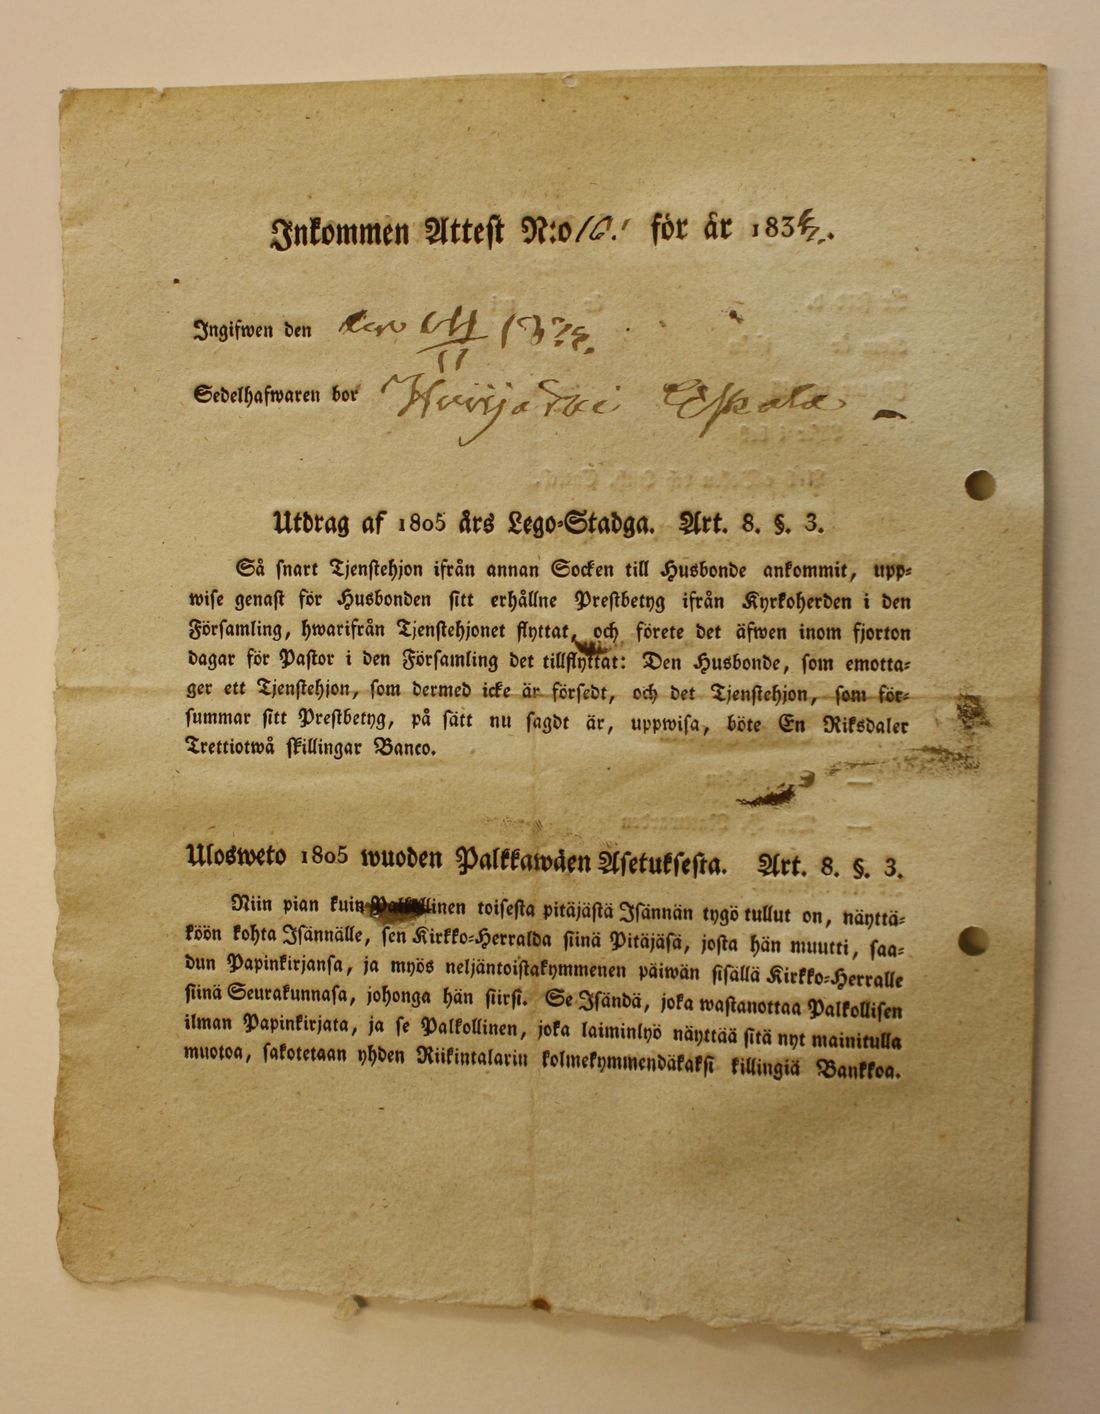 Inkommen Attest N:o 10. för år 183
Ingifwen den
Sedelhafwaren bor
Utdrag af 1805 års Lego-Stadga. Art. 8. §. 3.
Så snart Tjenstehjon ifrån annan Socken till Husbonde ankommit, upp-
wise genast för Husbonden sitt erhållne Prestbetyg ifrån Kyrkoherden i den
Församling, hwarifrån Tjenstehjonet flyttat, och förete det äfwen inom fjorton
dagar för Pastor i den Församling det tillflyttat: Den Husbonde, som emotta-
ger ett Tjenstehjon, som dermed icke är försedt, och det Tjenstehjon, som för-
summar sitt Prestbetyg, på sätt nu sagdt är, uppwisa, böte En Riksdaler
Trettiotwå skillingar Banco.
Ulosweto 1805 wuoden Palkkawäen Asetuksesta. Art. 8. §. 3.
Niin pian kuin Palkollinen toisesta pitäjästä Isännän tygö tullut on, näyttä-
köön kohta Isännälle, sen Kirkko-Herralda siinä Pitäjäsä, josta hän muutti, saa-
dun Papinkirjansa, ja myös neljäntoistakymmenen päiwän sisällä Kirkko-Herralle
siinä Seurakunnasa, johonga hän siirsi. Se Isändä, joka wastanottaa Palkollisen
ilman Papinkirjata, ja se Palkollinen, joka laiminlyö näyttää sitä nyt mainitulla
muotoa, sakotetaan yhden Riikintalarin kolmekymmendäkaksi killingiä Bankkoa.